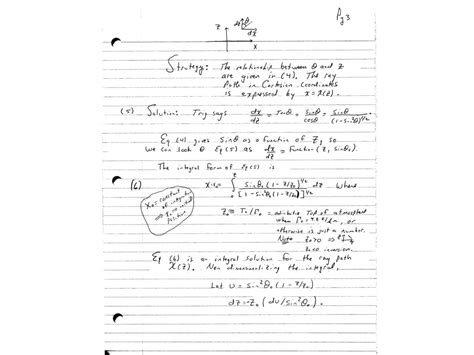 Pg 3
Z
dz
θ
dx
X
Strategy: The relationship between θ and z
are given in (4). The ray
Path in Cartesian Coordinates
is expressed by x = X(z).
(5) Solution: Trig says dx/dz = Tanθ = sinθ/cosθ = sinθ/(1-sin²θ)^½
Eq (4) gives sinθ as a function of z, so
we can look @ Eq (5) as dx/dz = Function (z, sinθ₀).
The integral form of Eq (5) is
(6) X-X₀ = ∫₀ᶻ sinθ₀(1-z/z₀)^½ / [1-sin²θ₀(1-z/z₀)]^½ dz where
X₀ = constant
of integration
=> initial
position
Z₀ ≡ T₀/Γ₀ = adiabatic of atmosphere
when Γ₀ = , or
otherwise is just a number.
Note z₀>0 =>
z₀<0 inversion.
Eq (6) is an integral solution for the ray path
X(z). Non dimensionalizing the integral,
Let U = sin²θ₀(1-z/z₀)
dz = -z₀(du/sin²θ₀).